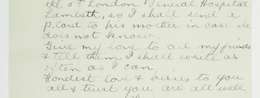 at London General Hospital
Lambeth, so I shall send a
P card to his mother in case he
does not know.
Give my love to all my friends
& tell them I shall write as
often as I can.
Fondest love & kisses to you
all & trust you are all well